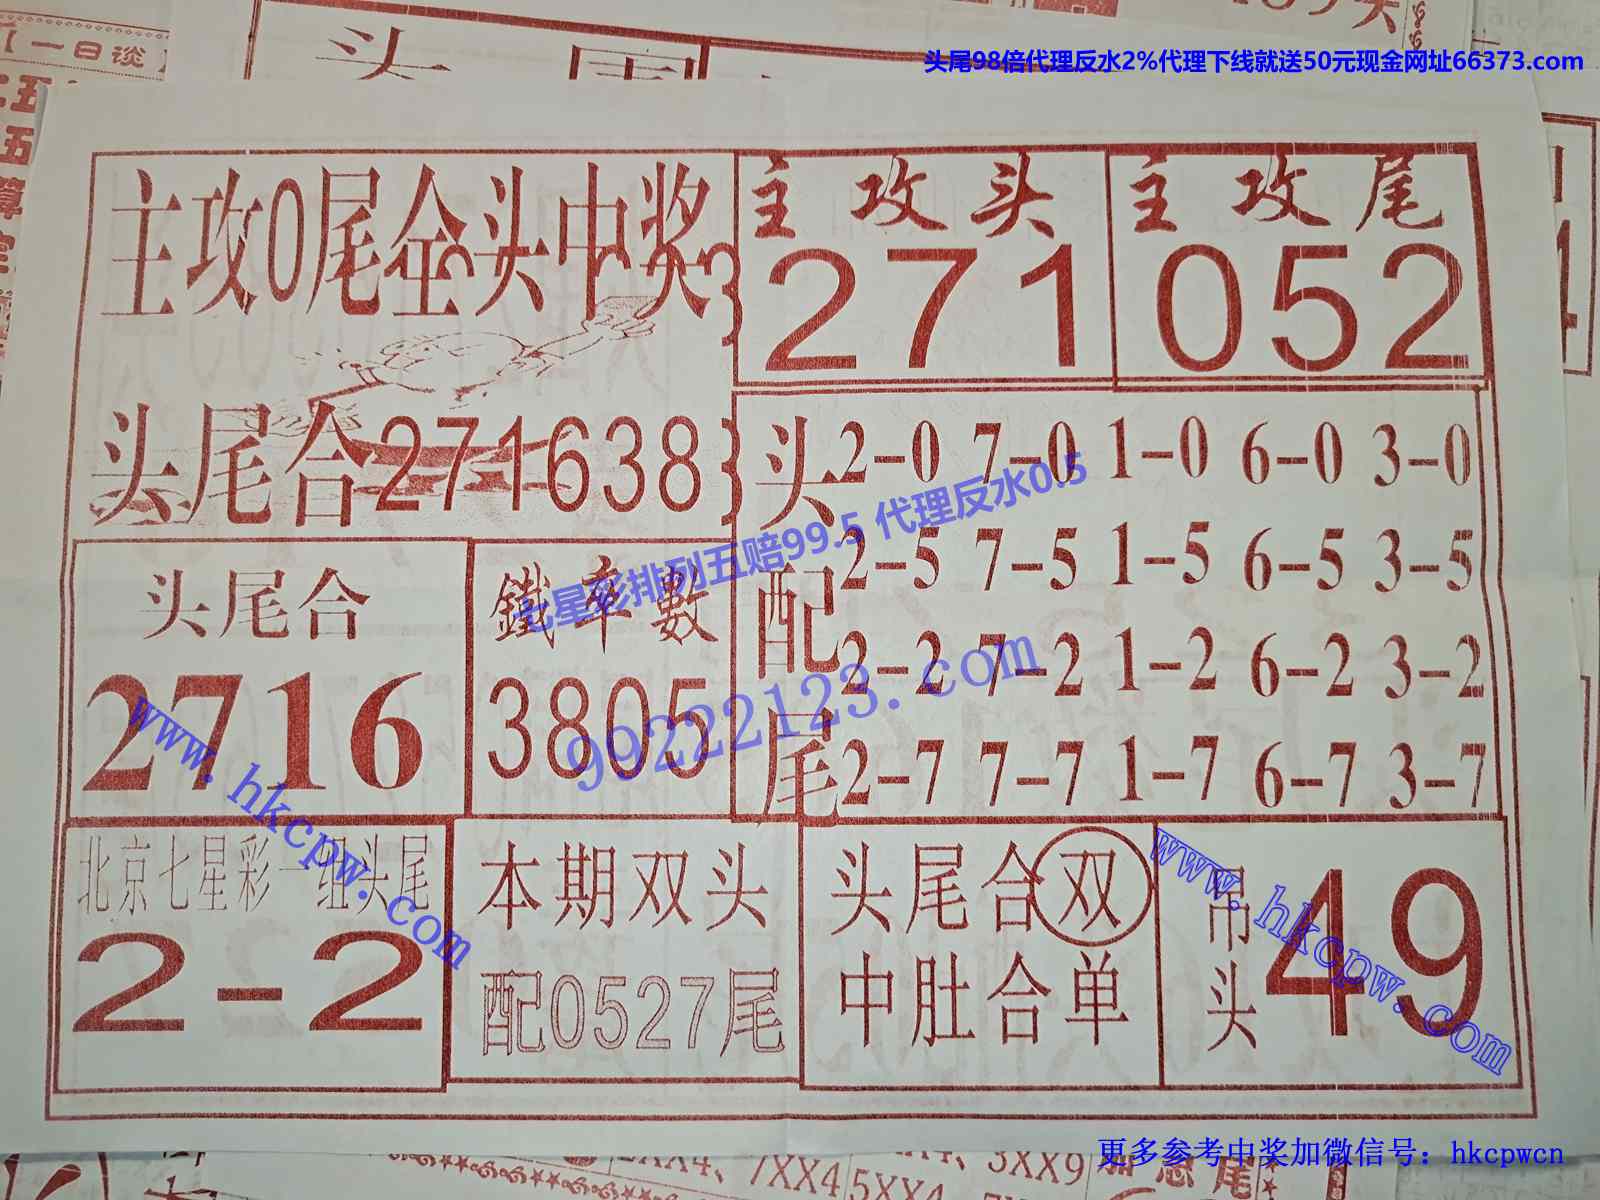 头尾98倍代理反水2%代理下线就送50元现金网址66373.com
【一日谈】
主攻0尾全头中奖
主攻头
271
主攻尾
052
头尾合271638
头配尾
2-0 7-0 1-0 6-0 3-0
2-5 7-5 1-5 6-5 3-5
2-2 7-2 1-2 6-2 3-2
2-7 7-7 1-7 6-7 3-7
七星彩排列五赔99.5 代理反水0.5
99222123.com
头尾合
2716
鐵率數
3805
www.hkcpw.com
北京七星彩一组头尾
2-2
本期双头
配0527尾
头尾合双
中肚合单
吊头
49
www.hkcpw.com
更多参考中奖加微信号：hkcpwcn
7XX4
5XX4
3XX9